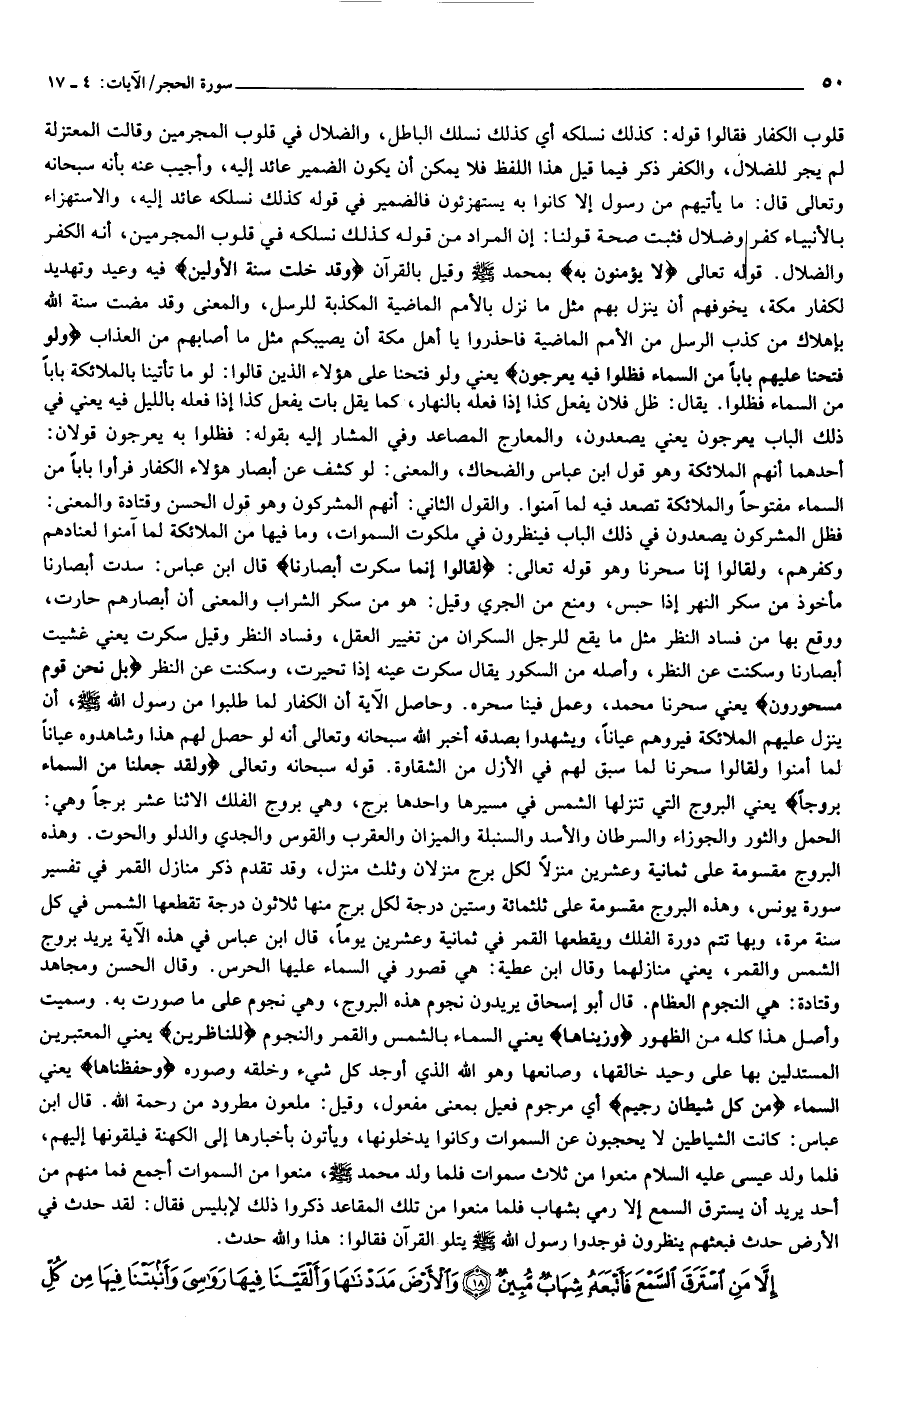 ٥٠ سورة الحجر/الآيات: ٤ ـ ١٧
قلوب الكفار فقالوا قوله: كذلك نسلكه أي كذلك نسلك الباطل، والضلال في قلوب المجرمين وقالت المعتزلة
لم يجر للضلال، والكفر ذكر فيما قيل هذا اللفظ فلا يمكن أن يكون الضمير عائد إليه، وأجيب عنه بأنه سبحانه
وتعالى قال: ما يأتيهم من رسول إلا كانوا به يستهزئون فالضمير في قوله كذلك نسلكه عائد إليه، والاستهزاء
بالأنبياء كفر وضلال فثبت صحة قولنا: إن المراد من قوله كذلك نسلكه في قلوب المجرمين، أنه الكفر
والضلال. قوله تعالى ﴿لا يؤمنون به﴾ بمحمد ﷺ وقيل بالقرآن ﴿وقد خلت سنة الأولين﴾ فيه وعيد وتهديد
لكفار مكة، يخوفهم أن ينزل بهم مثل ما نزل بالأمم الماضية المكذبة للرسل، والمعنى وقد مضت سنة الله
بإهلاك من كذب الرسل من الأمم الماضية فاحذروا يا أهل مكة أن يصيبكم مثل ما أصابهم من العذاب ﴿ولو
فتحنا عليهم باباً من السماء فظلوا فيه يعرجون﴾ يعني ولو فتحنا على هؤلاء الذين قالوا: لو ما تأتينا بالملائكة باباً
من السماء فظلوا. يقال: ظل فلان يفعل كذا إذا فعله بالنهار، كما يقل بات يفعل كذا إذا فعله بالليل فيه يعني في
ذلك الباب يعرجون يعني يصعدون، والمعارج المصاعد وفي المشار إليه بقوله: فظلوا به يعرجون قولان:
أحدهما أنهم الملائكة وهو قول ابن عباس والضحاك، والمعنى: لو كشف عن أبصار هؤلاء الكفار فرأوا باباً من
السماء مفتوحاً والملائكة تصعد فيه لما آمنوا. والقول الثاني: أنهم المشركون وهو قول الحسن وقتادة والمعنى:
فظل المشركون يصعدون في ذلك الباب فينظرون في ملكوت السموات، وما فيها من الملائكة لما آمنوا لعنادهم
وكفرهم، ولقالوا إنا سحرنا وهو قوله تعالى: ﴿لقالوا إنما سكرت أبصارنا﴾ قال ابن عباس: سدت أبصارنا
مأخوذ من سكر النهر إذا حبس، ومنع من الجري وقيل: هو من سكر الشراب والمعنى أن أبصارهم حارت،
ووقع بها من فساد النظر مثل ما يقع للرجل السكران من تغيير العقل، وفساد النظر وقيل سكرت يعني غشيت
أبصارنا وسكنت عن النظر، وأصله من السكور يقال سكرت عينه إذا تحيرت، وسكنت عن النظر ﴿بل نحن قوم
مسحورون﴾ يعني سحرنا محمد، وعمل فينا سحره. وحاصل الآية أن الكفار لما طلبوا من رسول الله ﷺ، أن
ينزل عليهم الملائكة فيروهم عياناً، ويشهدوا بصدقه أخبر الله سبحانه وتعالى أنه لو حصل لهم هذا وشاهدوه عياناً
لما أمنوا ولقالوا سحرنا لما سبق لهم في الأزل من الشقاوة. قوله سبحانه وتعالى ﴿ولقد جعلنا من السماء
بروجاً﴾ يعني البروج التي تنزلها الشمس في مسيرها واحدها برج، وهي بروج الفلك الاثنا عشر برجاً وهي:
الحمل والثور والجوزاء والسرطان والأسد والسنبلة والميزان والعقرب والقوس والجدي والدلو والحوت. وهذه
البروج مقسومة على ثمانية وعشرين منزلاً لكل برج منزلان وثلث منزل، وقد تقدم ذكر منازل القمر في تفسير
سورة يونس، وهذه البروج مقسومة على ثلثمائة وستين درجة لكل برج منها ثلاثون درجة تقطعها الشمس في كل
سنة مرة، وبها تتم دورة الفلك ويقطعها القمر في ثمانية وعشرين يوماً، قال ابن عباس في هذه الآية يريد بروج
الشمس والقمر، يعني منازلهما وقال ابن عطية: هي قصور في السماء عليها الحرس. وقال الحسن ومجاهد
وقتادة: هي النجوم العظام. قال أبو إسحاق يريدون نجوم هذه البروج، وهي نجوم على ما صورت به. وسميت
وأصل هذا كله من الظهور ﴿وزيناها﴾ يعني السماء بالشمس والقمر والنجوم ﴿للناظرين﴾ يعني المعتبرين
المستدلين بها على وحيد خالقها، وصانعها وهو الله الذي أوجد كل شيء وخلقه وصوره ﴿وحفظناها﴾ يعني
السماء ﴿من كل شيطان رجيم﴾ أي مرجوم فعيل بمعنى مفعول، وقيل: ملعون مطرود من رحمة الله. قال ابن
عباس: كانت الشياطين لا يحجبون عن السموات وكانوا يدخلونها، ويأتون بأخبارها إلى الكهنة فيلقونها إليهم،
فلما ولد عيسى عليه السلام منعوا من ثلاث سموات فلما ولد محمد ﷺ، منعوا من السموات أجمع فما منهم من
أحد يريد أن يسترق السمع إلا رمي بشهاب فلما منعوا من تلك المقاعد ذكروا ذلك لإبليس فقال: لقد حدث في
الأرض حدث فبعثهم ينظرون فوجدوا رسول الله ﷺ يتلو القرآن فقالوا: هذا والله حدث.
إِلَّا مَنِ ٱسْتَرَقَ ٱلسَّمْعَ فَأَتْبَعَهُۥ شِهَابٌ مُّبِينٌ ﴿١٨﴾ وَٱلْأَرْضَ مَدَدْنَٰهَا وَأَلْقَيْنَا فِيهَا رَوَٰسِىَ وَأَنۢبَتْنَا فِيهَا مِن كُلِّ